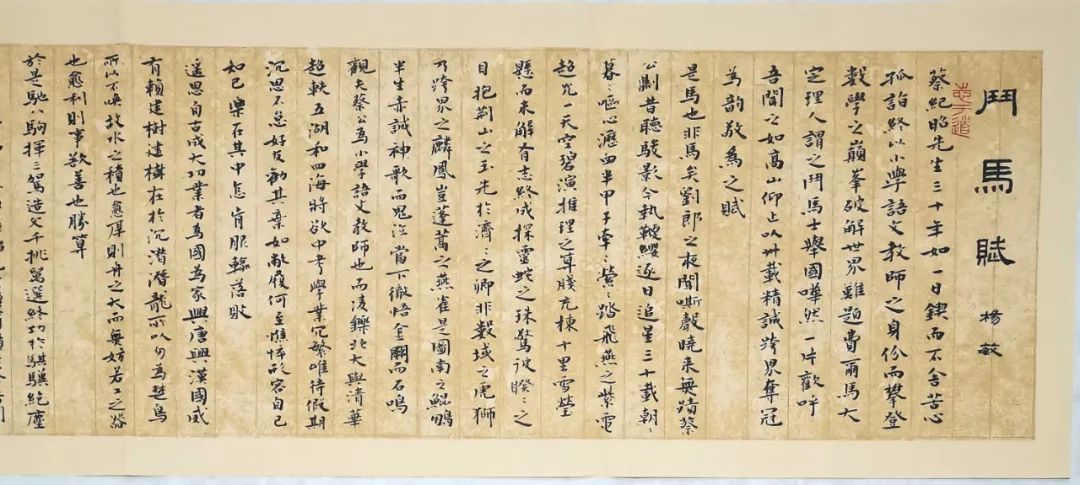 鬥馬賦
楊敏
志于道
蔡紀昭先生三十年如一日鍥而不舍苦心
孤詣終以小學語文教師之身份而攀登
數學之巔峯破解世界難題費爾馬大
定理人謂之鬥馬士舉國嘩然一片歡呼
吾聞之如高山仰止以卅載精誠跨界奪冠
為韵敬為之賦
是馬也非馬矣劉郎之夜聞嘶聲曉来無蹟蔡
公劃昔聽駿影今執鞭纓逐日追星三十載朝〻
暮〻嘔心瀝血半甲子牽〻縈〻踏飛燕之紫電
超光一天空碧演推理之算牋充棟十里雪瑩
懸而未解有志終成探靈蛇之珠驚彼睽〻之
目抱荆山之玉光於濟〻之卿非數域之虎獅
乃跨界之麟鳳豈蓬蒿之燕雀是圖南之鯤鵬
半生赤誠神歌而鬼泣當下徹悟金鬭而石鳴
觀夫蔡公為小學語文教師也而凌鑠北大與清華
超軼五湖和四海將欲中考學業冗繁唯待假期
沉思不怠好友勸其棄如敝履何至憔悴形容自己
如己樂在其中怎肯服輸落敗
遥思自古成大功業者為國為家興唐興漢國威
有賴建樹建構在於沉潛潛龍所以勿為烏
所以不喚故水之積也愈厚則舟之大而無妨若工之
也愈利則事欲善也勝算
於是馳八駒揮三駕造父千挑萬選終功於騏驥絕塵